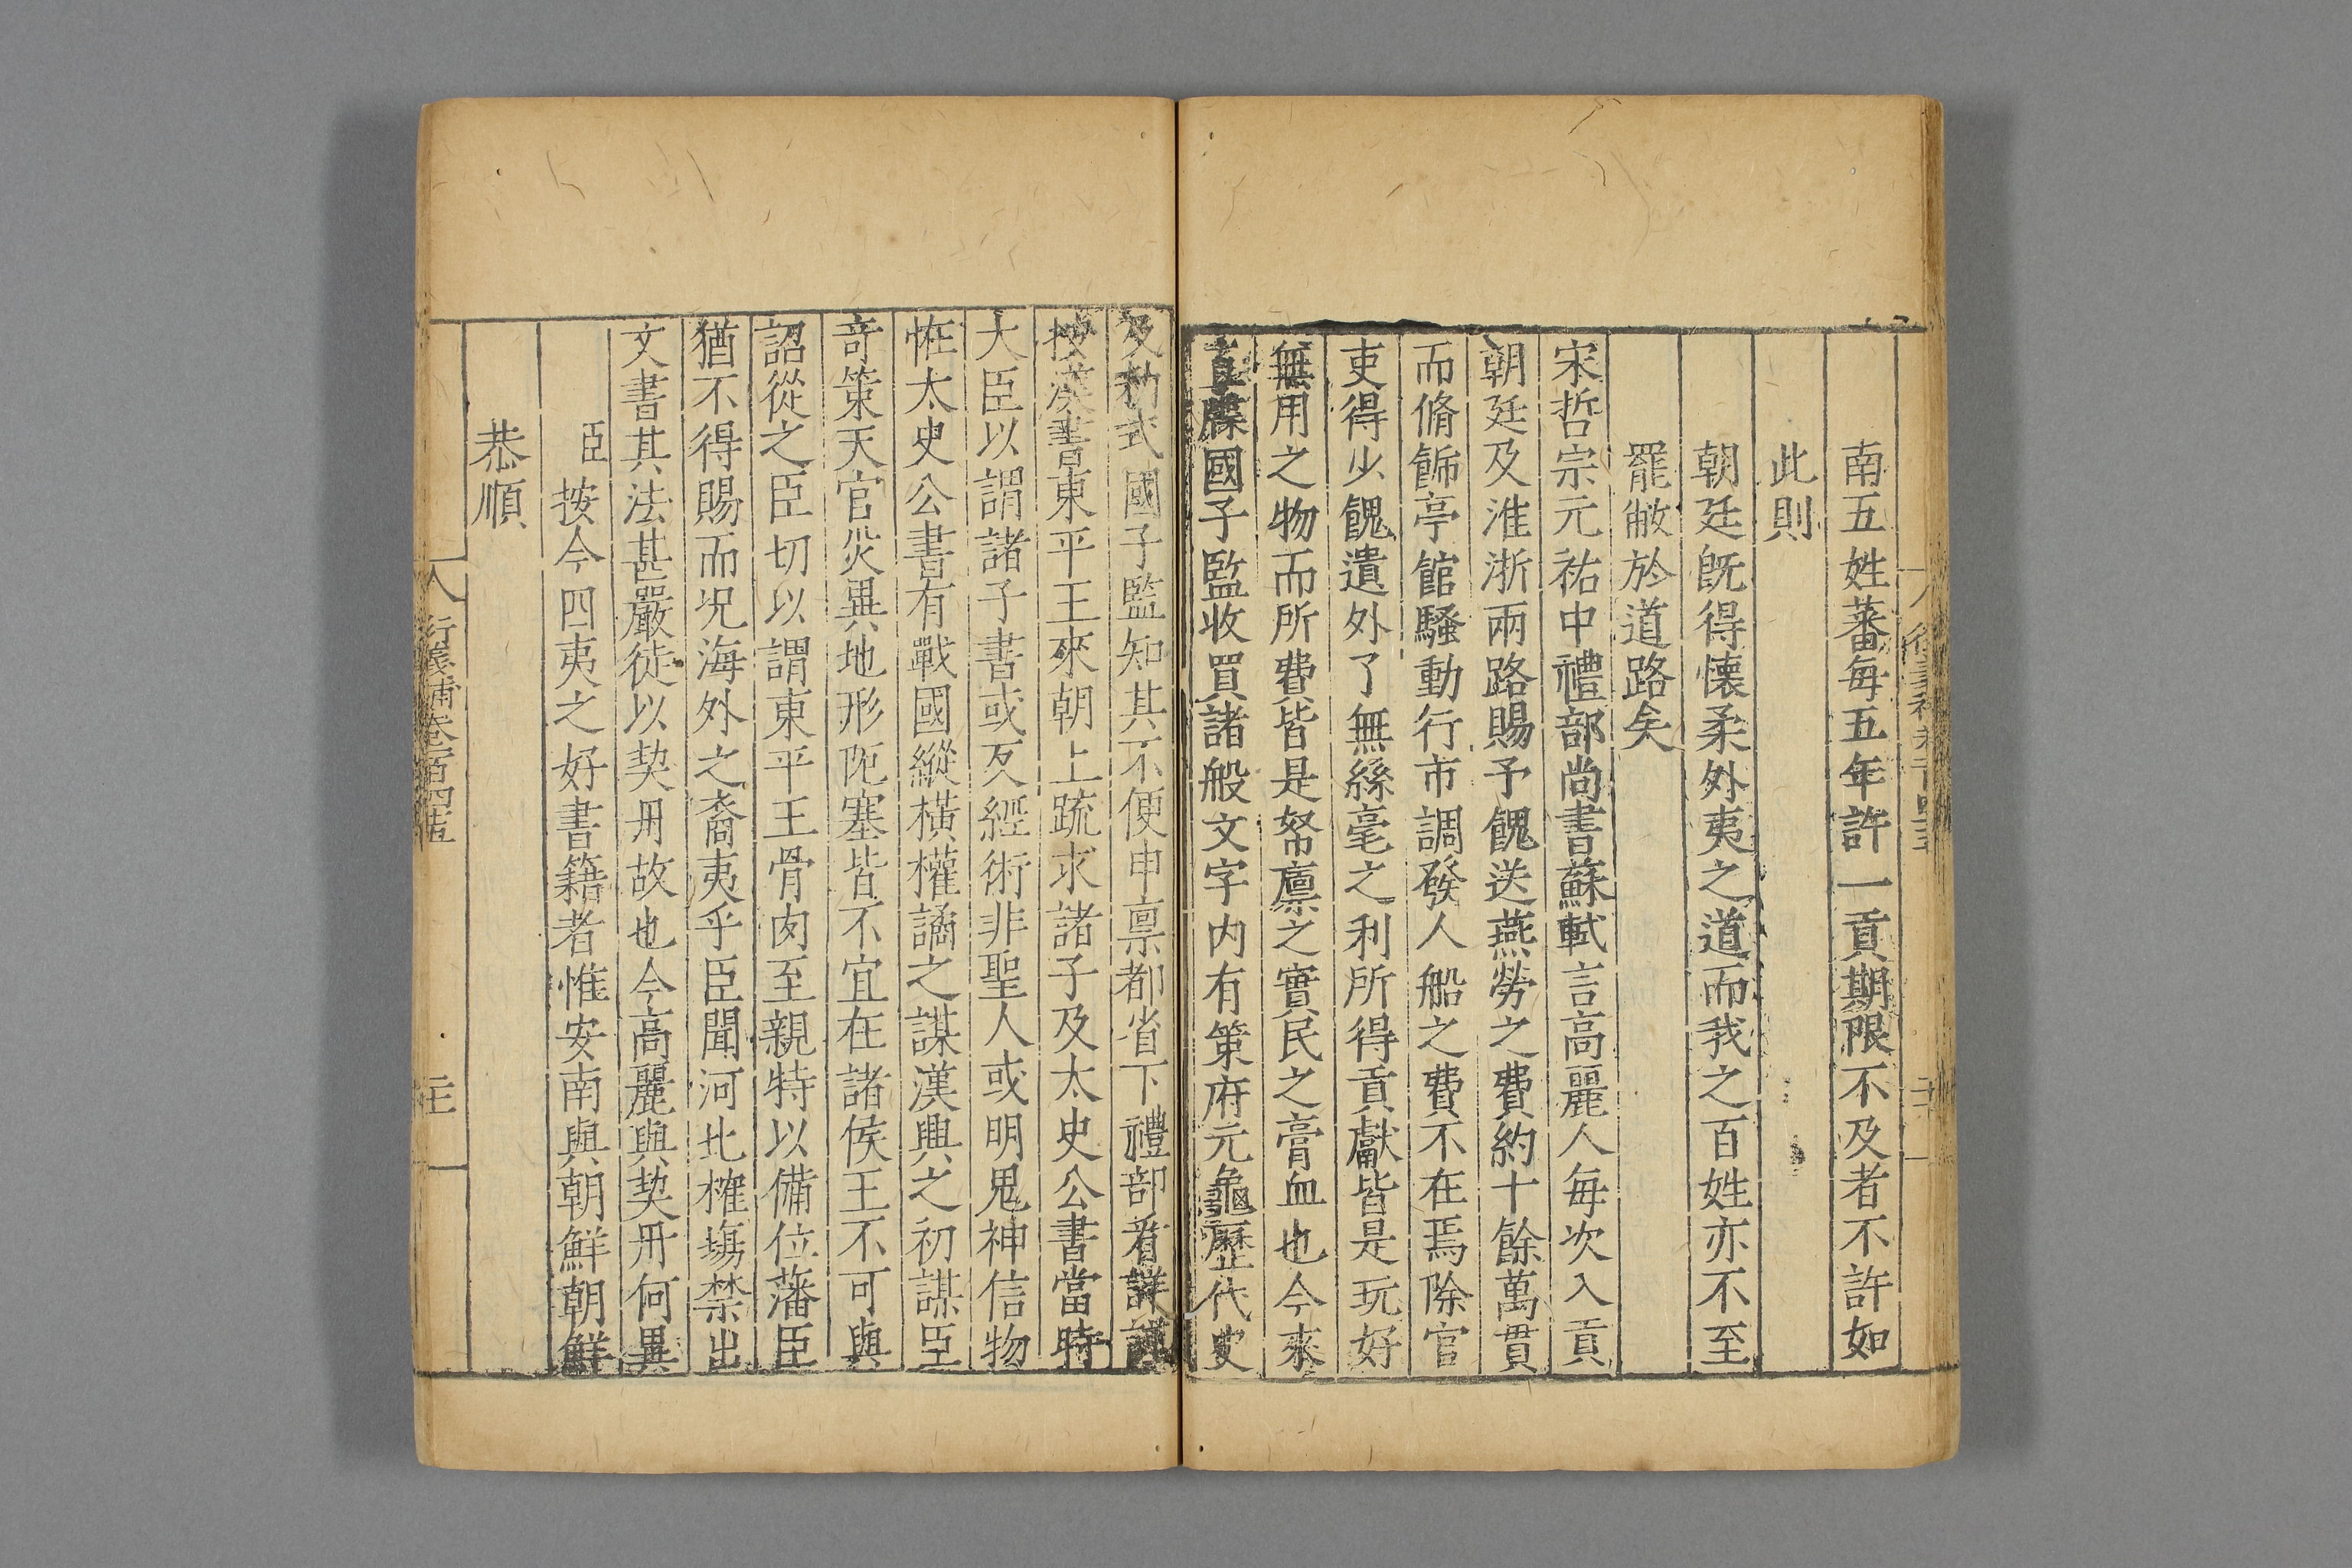 南五姓蕃每五年許一貢期限不及者不許如
此則
朝廷既得懷柔外夷之道而我之百姓亦不至
罷敝於道路矣
宋哲宗元祐中禮部尚書蘇軾言高麗人每次入貢
朝廷及淮浙兩路賜予餽送燕勞之費約十餘萬貫
而脩飾亭館騷動行市調發人船之費不在焉除官
吏得少餽遺外了無絲毫之利所得貢獻皆是玩好
無用之物而所費皆是帑廪之實民之膏血也今來
直牒國子監收買諸般文字内有策府元龜歷代史
及勑式國子監知其不便申禀都省下禮部看詳謹
按漢書東平王來朝上疏求諸子及太史公書當時
大臣以謂諸子書或反經術非聖人或明鬼神信物
恠太史公書有戰國縱橫權譎之謀漢興之初謀臣
竒策天官災異地形阨塞皆不宜在諸侯王不可與
詔從之臣切以謂東平王骨肉至親特以備位藩臣
猶不得賜而况海外之裔夷乎臣聞河北榷塲禁出
文書其法甚嚴徒以契丹故也今高麗與契丹何異
臣按今四夷之好書籍者惟安南與朝鮮朝鮮
恭順
衍義補卷一百四十五